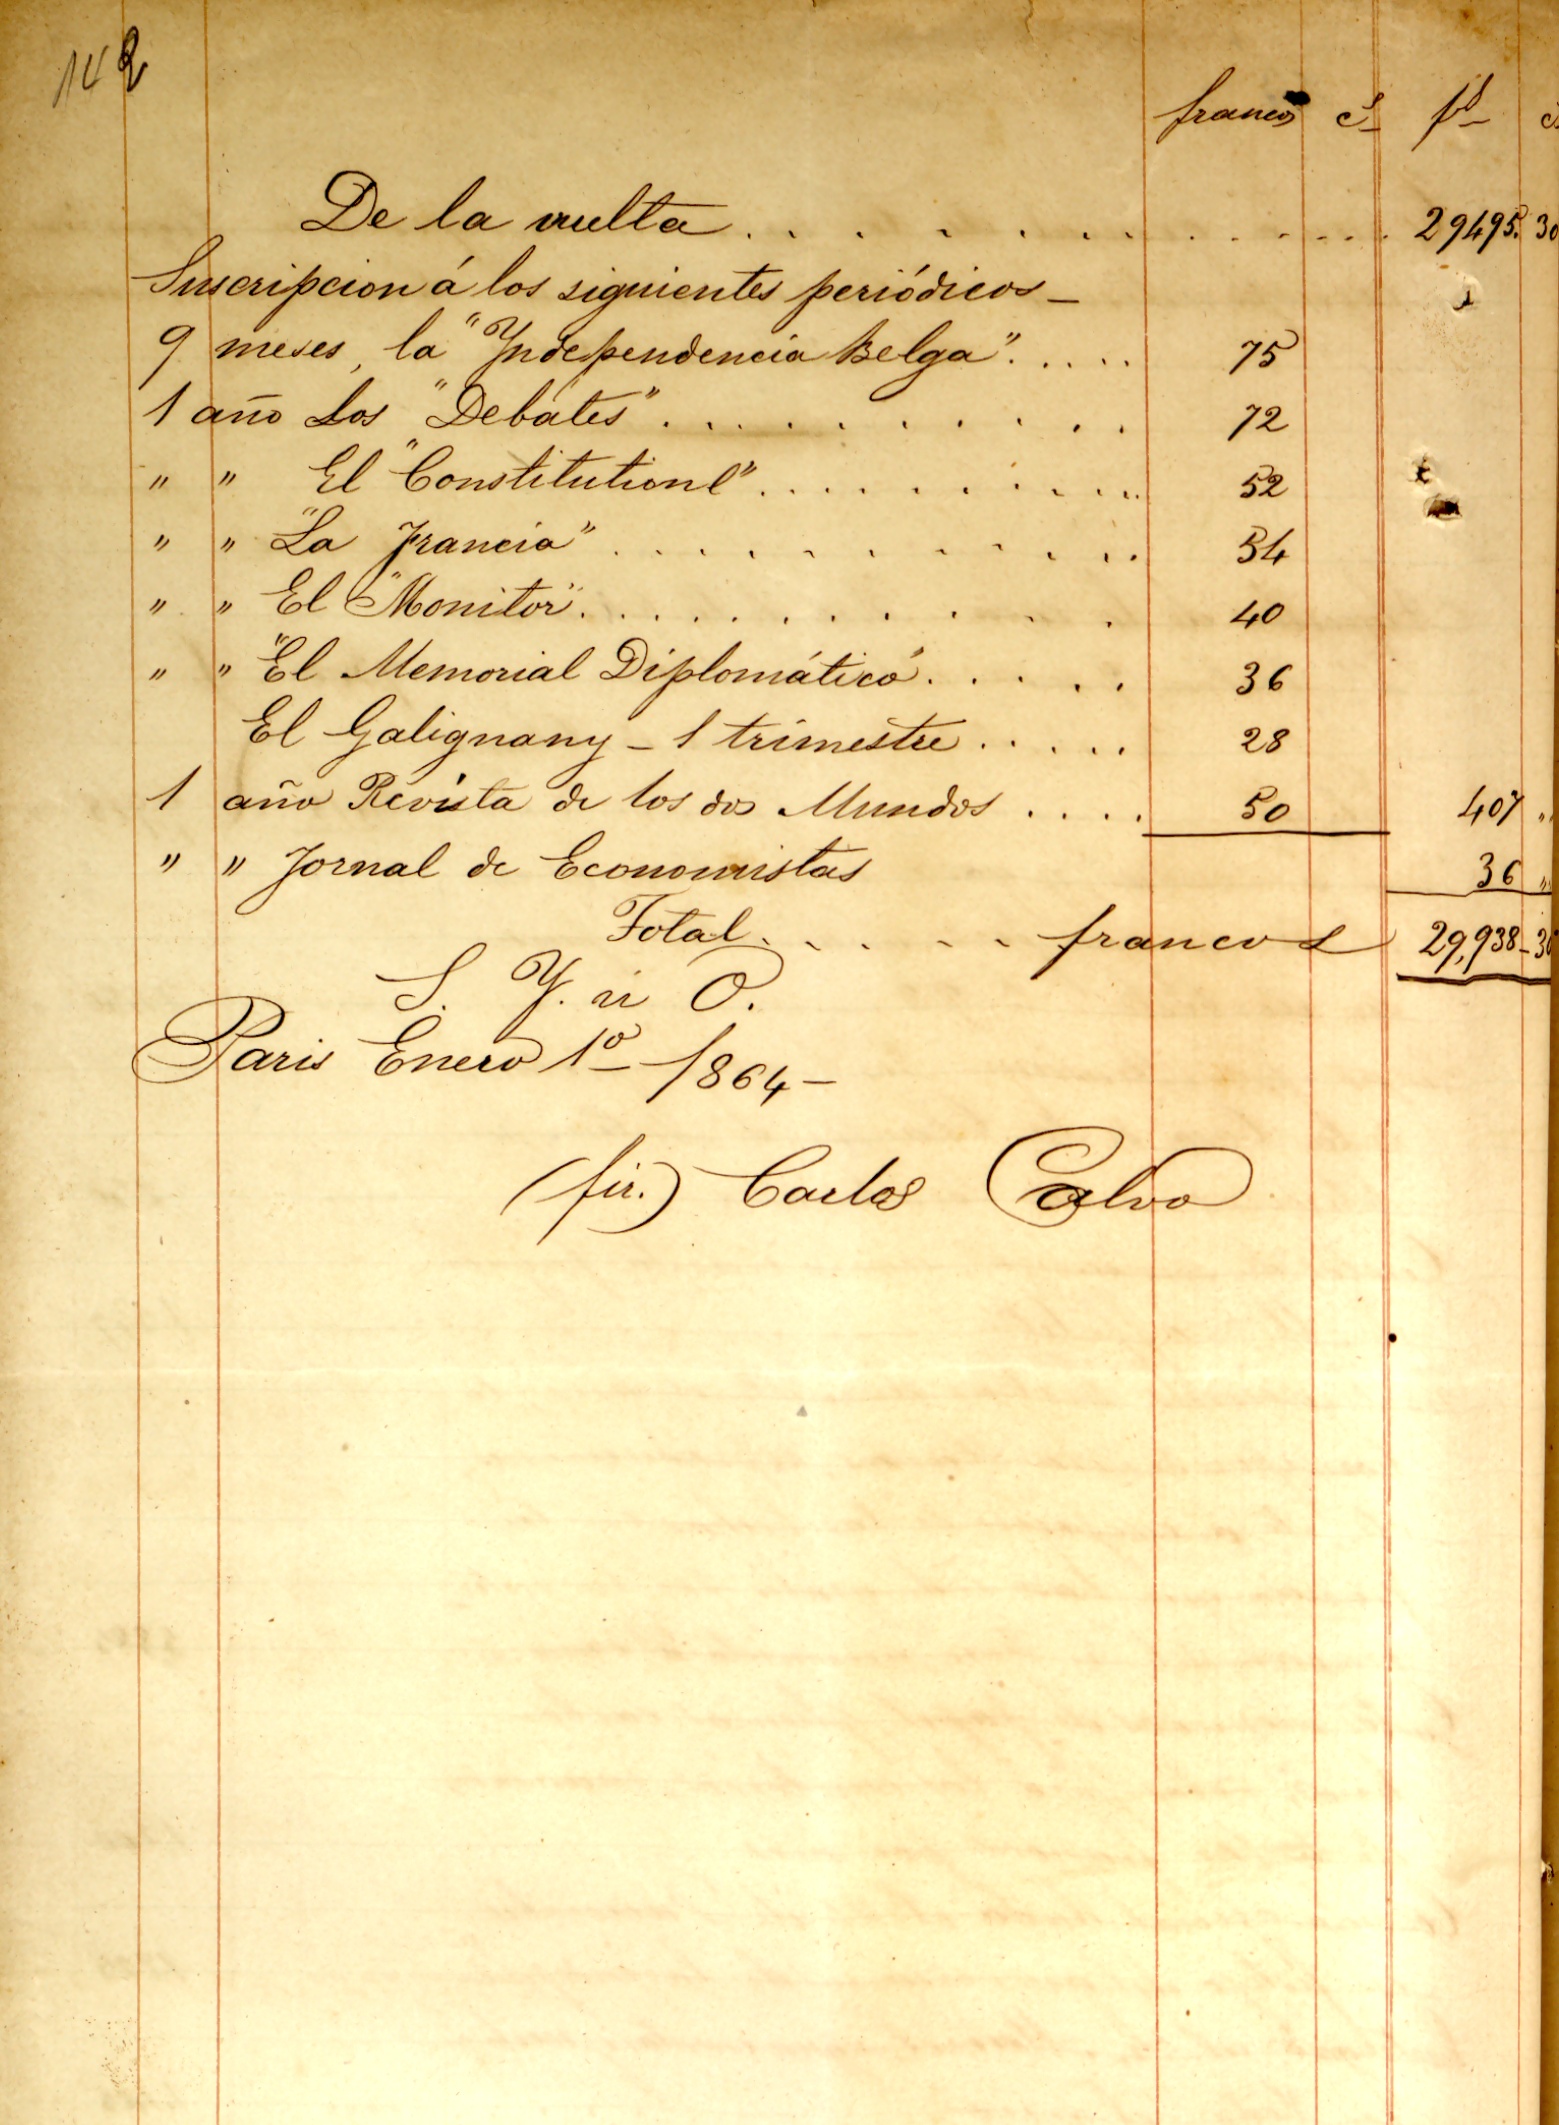 142
francos cs fs cs
De la vuelta . . . . . . . . . . . . 29495. 30
Suscripcion á los siguientes periódicos _
9 meses, la "Yndependencia Belga" . . . . . 75
1 año Los "Debates" . . . . . . . . . 72
" " El "Constitutionl" . . . . . . . . . 52
" " "La Francia" . . . . . . . . . 54
" " El "Monitor" . . . . . . . . . 40
" " "El Memorial Diplomático" . . . . . 36
El Galignany _ 1 trimestre . . . . . 28
1 año Revista de los dos Mundos . . . . 50 407 "
" " Jornal de Economistas 36 "
Total . . . . . francos 29,938_30
S. Y. ú O.
Paris Enero 1º _ 1864 _
(fir.) Carlos Calvo